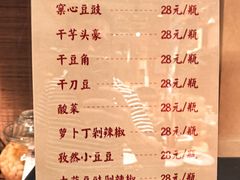 窝心豆豉 28元/瓶
干芋头豪 28元/瓶
干豆角 28元/瓶
干刀豆 28元/瓶
酸菜 28元/瓶
萝卜丁剁辣椒 28元/瓶
孜然小豆豆 28元/瓶
豆豉剁辣椒 28元/瓶